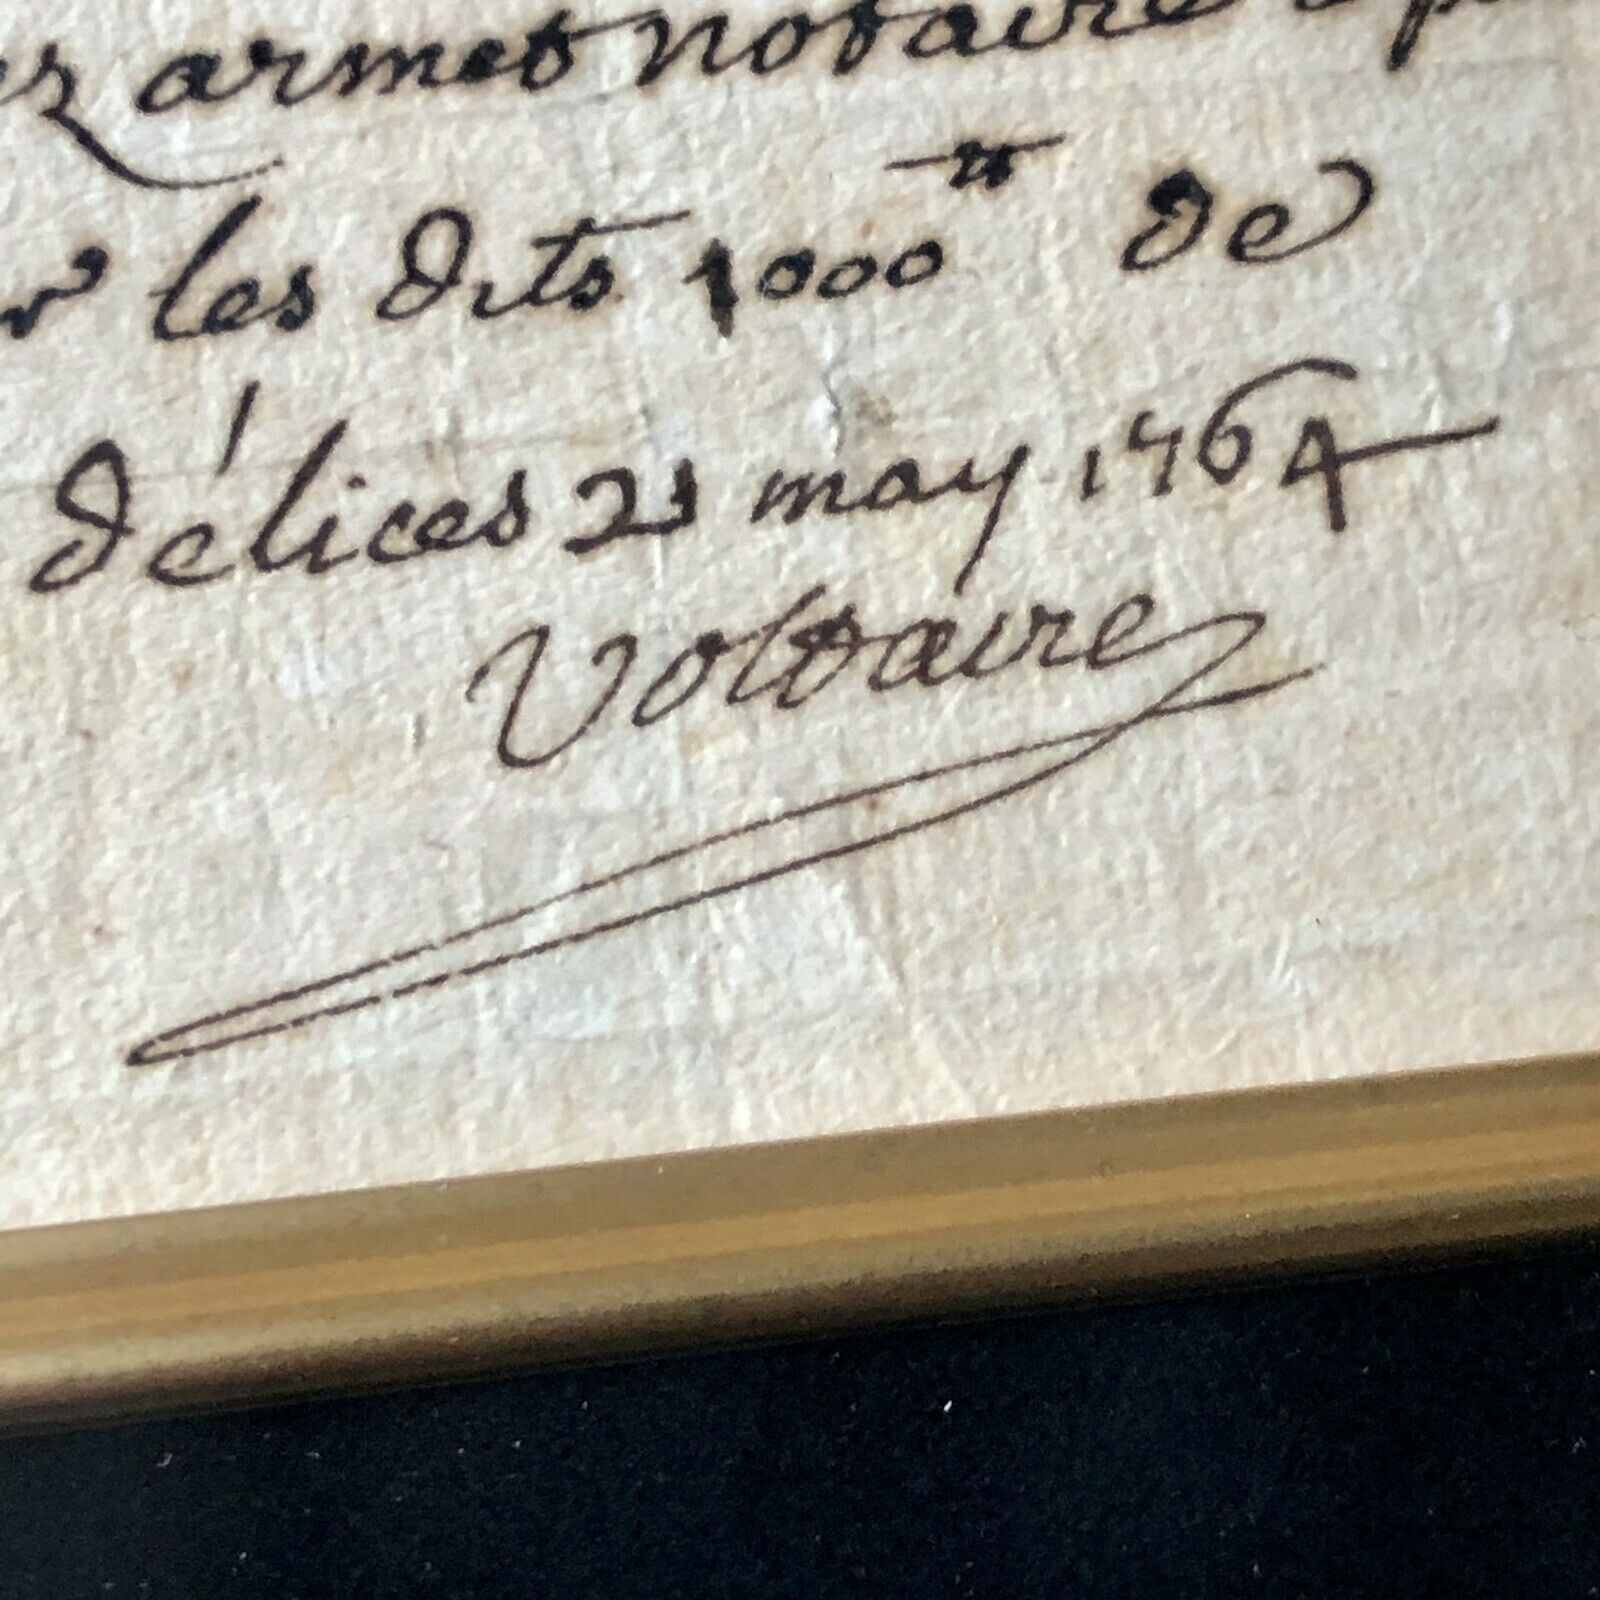 armet notaire
les dits 1000ᵗᵗ de
délices 21 may 1764
Voltaire